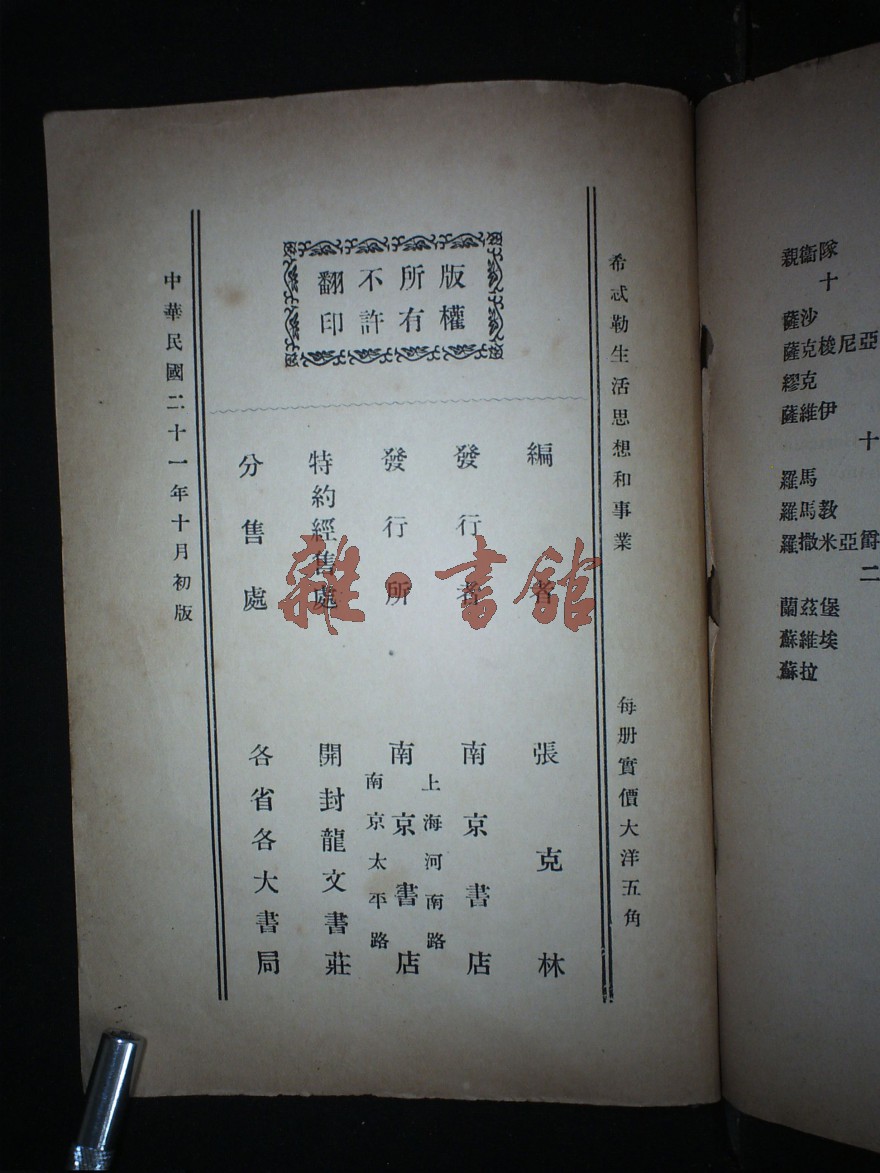 親衞隊
十
薩沙
薩克梭尼亞
繆克
薩維伊
十
羅馬
羅馬教
羅撒米亞爵
二
蘭茲堡
蘇維埃
蘇拉
希忒勒生活思想和事業
每册實價大洋五角
版權
所有
不許
翻印
編者 張克林
發行者 南京書店
發行所 上海河南路 南京書店 南京太平路
特約經售處 開封龍文書莊
分售處 各省各大書局
中華民國二十一年十月初版
雜·書館